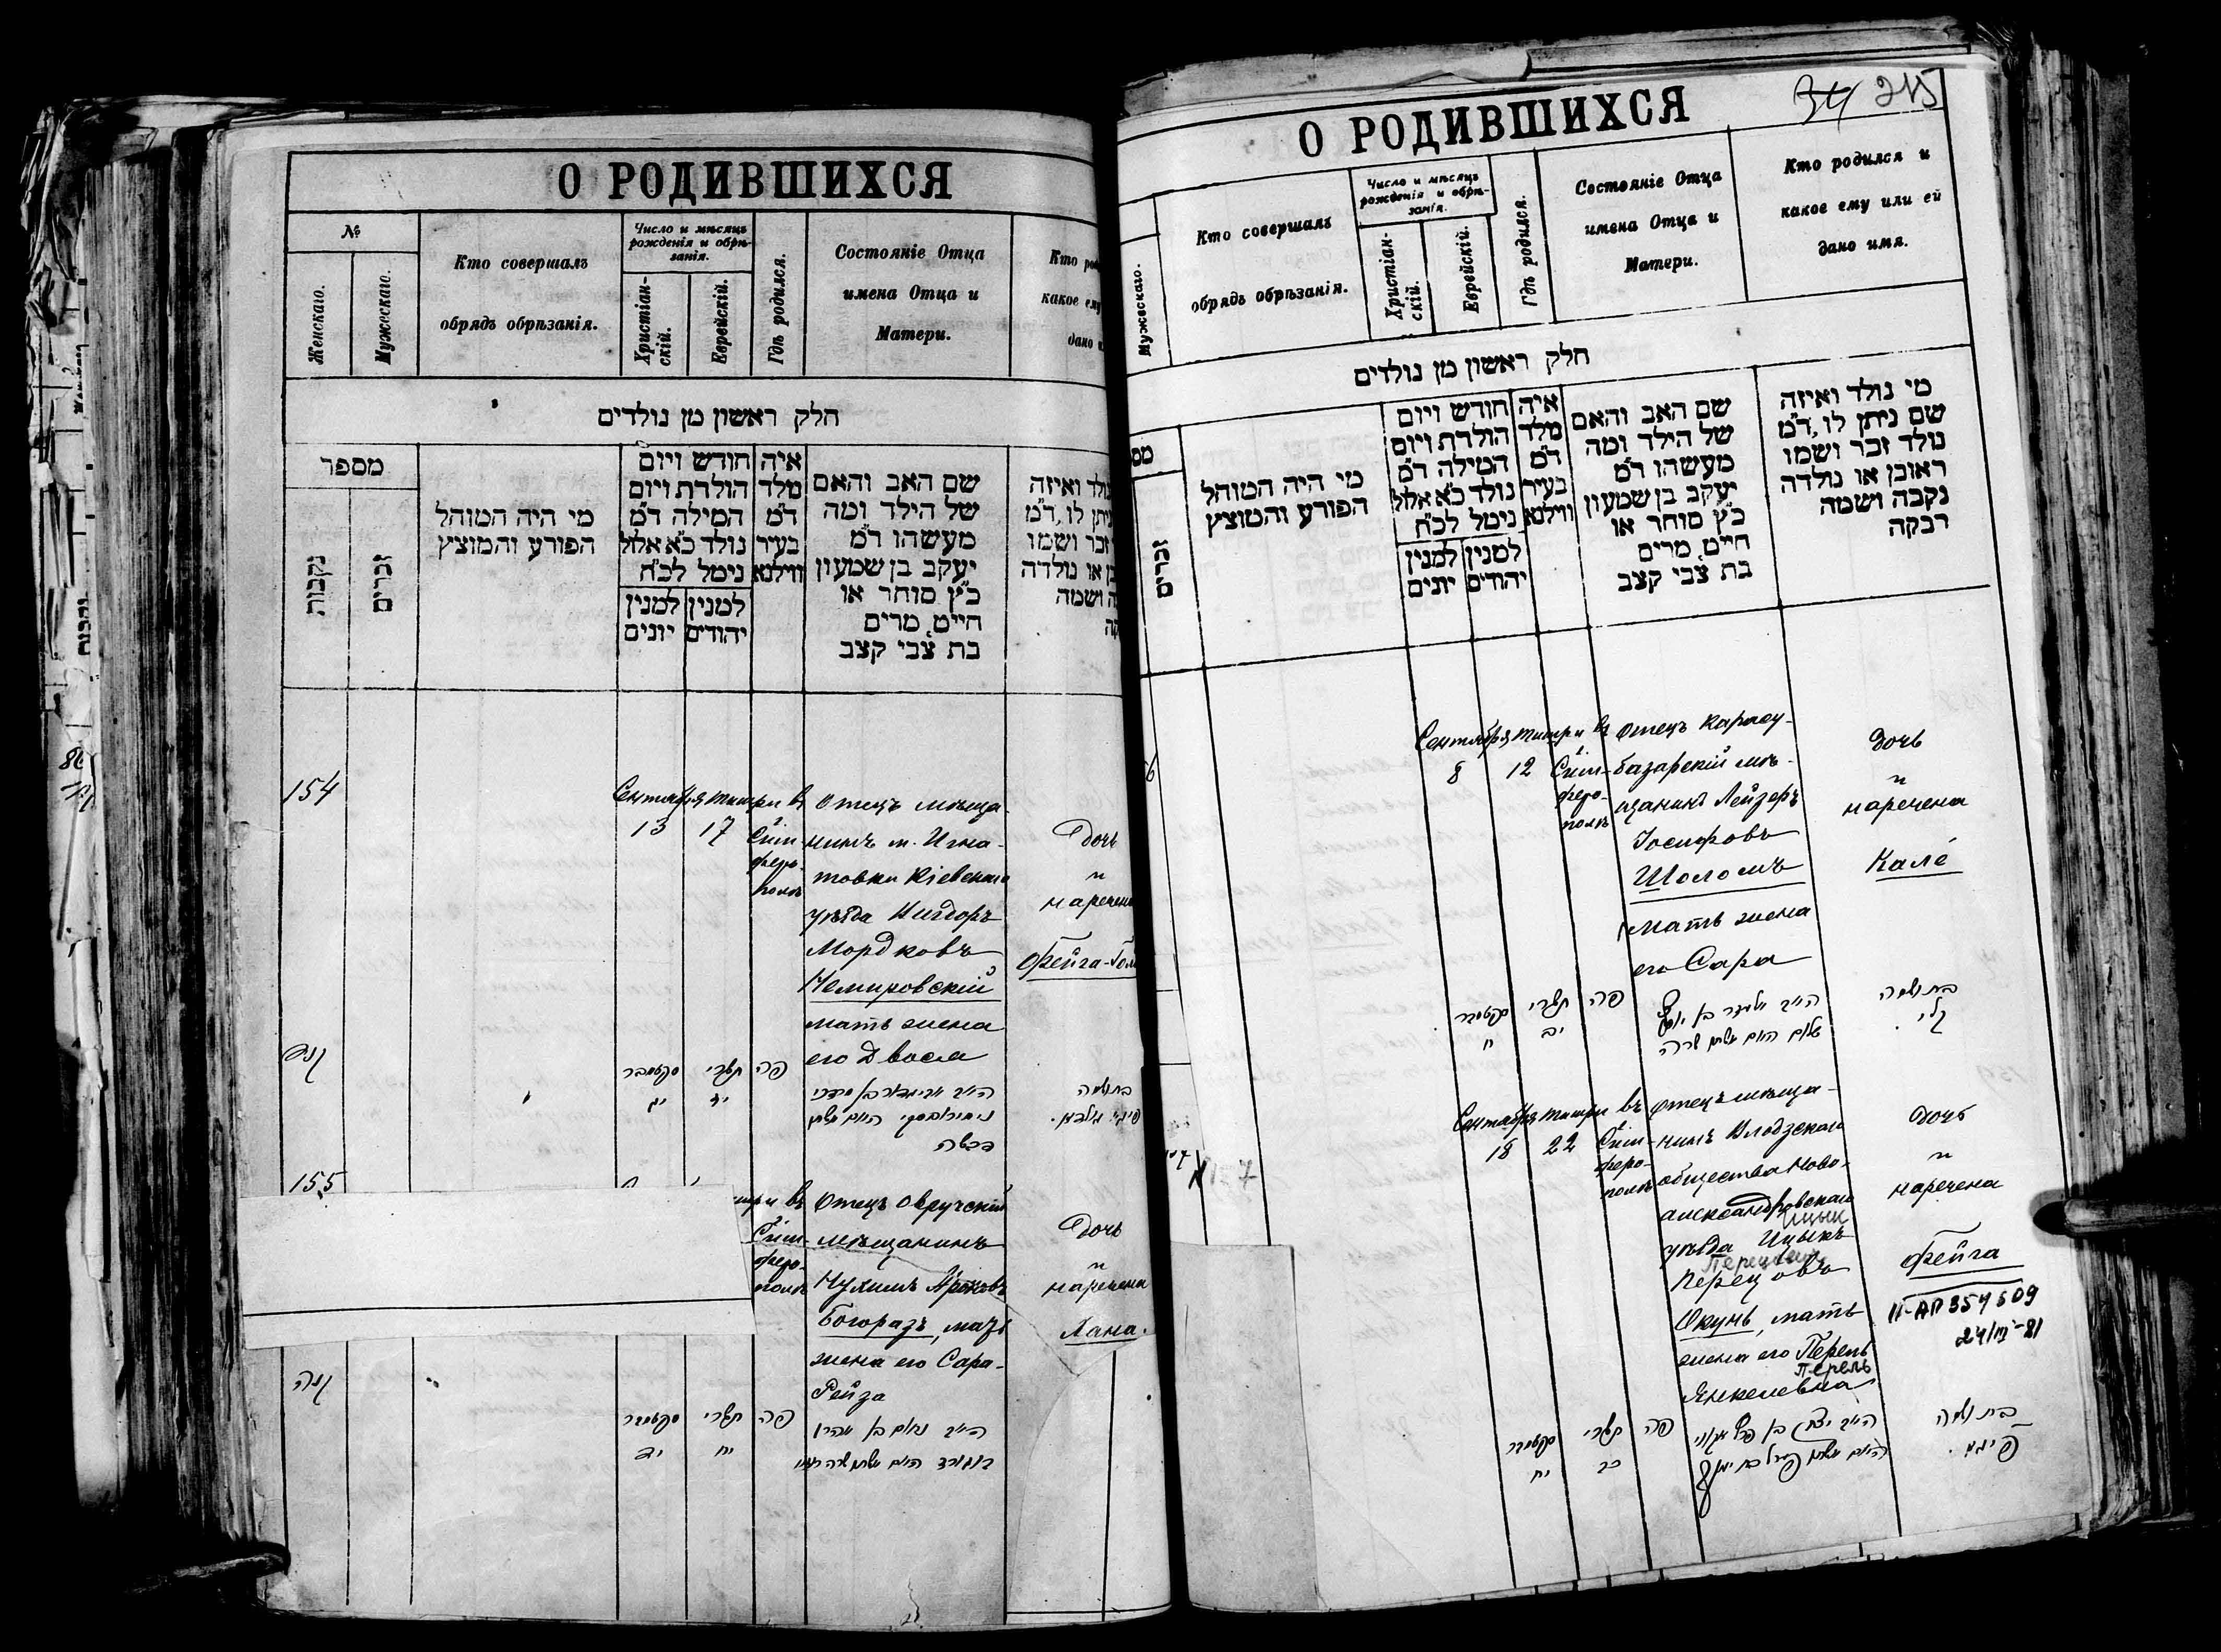 О РОДИВШИХСЯ
№
Женскаго.
Мужескаго.
Кто совершалъ
обрядъ обрѣзанія.
Число и мѣсяцъ
рожденія и обрѣ-
занія.
Христіан-
скій.
Еврейскій.
Гдѣ родился.
Состояніе Отца
имена Отца и
Матери.
Кто
какое ему
дано
חלק ראשון מן נולדים
מספר
נקבות
זכרים
מי היה המוהל
הפורע והמוצץ
חודש ויום
הולדת ויום
המילה ד״מ
נולד כ״א אלול
נימל לכ״ח
למנין למנין
יהודים יונים
איה
מלד
ד״מ
בעיר
ווילנא
שם האב והאם
של הילד ומה
מעשהו ד״מ
יעקב בן שמעון
כ״ץ סוחר או
חייט, מרים
בת צבי קצב
ואיזה
לו, ד״מ
ושמו
או נולדה
ושמה
154
Сентября Тишри въ
13 17 Сим-
феро-
полѣ
Отецъ мѣща-
нинъ м. Игна-
товки Кіевскаго
уѣзда Нигдоръ
Мордковъ
Немировскій
мать жена
его Двося
Дочь
и
наречена
Фейга-Гол
קנד
סקטמבר תשרי פה
יג יז
בת ושמה
155
въ
Сим-
феро-
полѣ
Отецъ Овручскій
мѣщанинъ
Нухимъ Ароновъ
Богоразъ, мать
жена его Сара-
Рейза
Дочь
и
наречена
Хана.
קנה
סקטמבר תשרי פה
יד יח
34 215
О РОДИВШИХСЯ
Мужескаго.
Кто совершалъ
обрядъ обрѣзанія.
Число и мѣсяцъ
рожденія и обрѣ-
занія.
Христіан-
скій.
Еврейскій.
Гдѣ родился.
Состояніе Отца
имена Отца и
Матери.
Кто родился и
какое ему или ей
дано имя.
חלק ראשון מן נולדים
זכרים
מי היה המוהל
הפורע והמוצץ
חודש ויום
הולדת ויום
המילה ד״מ
נולד כ״א אלול
נימל לכ״ח
למנין למנין
יהודים יונים
איה
מלד
ד״מ
בעיר
ווילנא
שם האב והאם
של הילד ומה
מעשהו ד״מ
יעקב בן שמעון
כ״ץ סוחר או
חייט, מרים
בת צבי קצב
מי נולד ואיזה
שם ניתן לו, ד״מ
נולד זכר ושמו
ראובן או נולדה
נקבה ושמה
רבקה
6
Сентября Тишри въ
8 12 Сим-
феро-
полѣ
Отецъ Карасу-
базарскій мѣ-
щанинъ Лейзеръ
Іосифовъ
Шоломъ
мать жена
его Сара
Дочь
и
наречена
Кале
סקטמבר תשרי פה
ח יב
בת ושמה
קלי.
7
Сентября Тишри въ
18 22 Сим-
феро-
полѣ
Отецъ мѣща-
нинъ Илюдзскаго
общества Ново-
александровскаго
Ицык
уѣзда Ицыкъ
Перецович
Перецовъ
Окунь, мать
жена его Перель
Перель
Янкелевна
Дочь
и
наречена
Фейга
II-АП 354509
24/III-81
סקטמבר תשרי פה
יח כב
בת ושמה
פייגא.